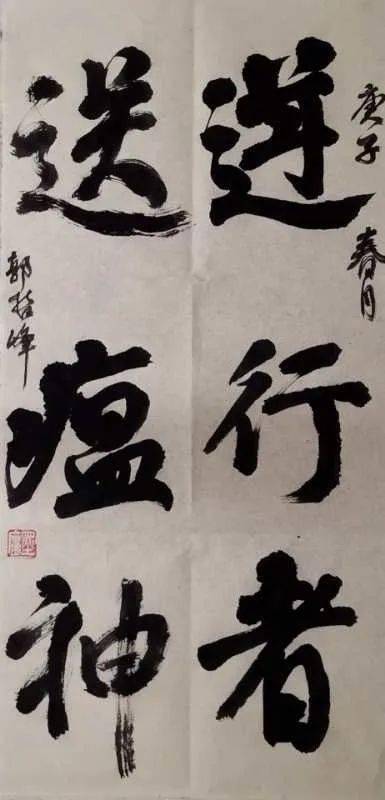 庚子 春月
逆行者
送瘟神
郭哲峰